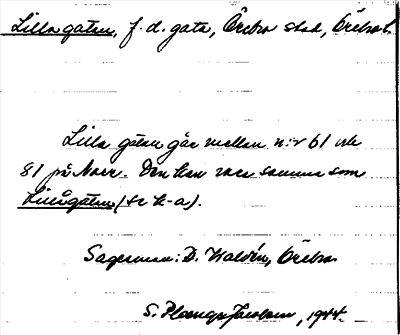 Lilla gatan, f.d. gata, Örebro stad, Örebro l.
Lilla gatan går mellan n:r 61 och
81 på Norr. Den kan vara samma som
Lillågatan (se k-a).
Sagesman: D. Waldén, Örebro
S. Plaenge Jacobson, 1944.